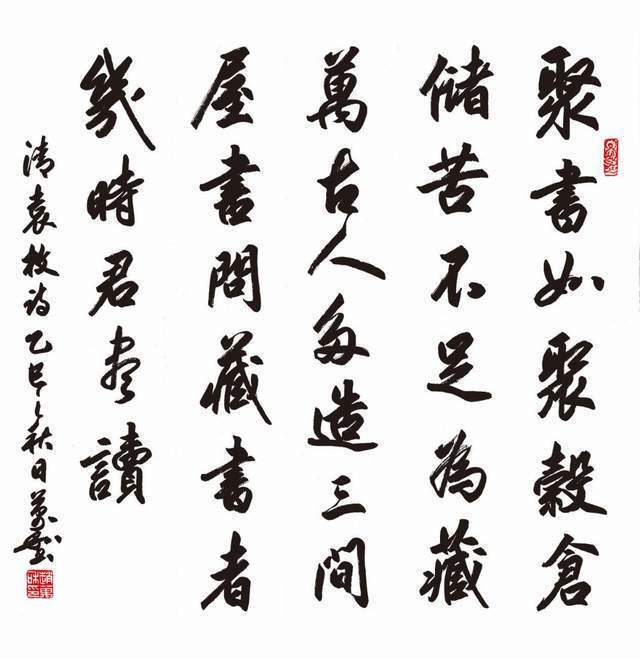 聚書如聚穀倉
儲苦不足為藏
萬古人多造三間
屋書問藏書者
幾時君尽讀
清袁枚詩乙巳之秋日